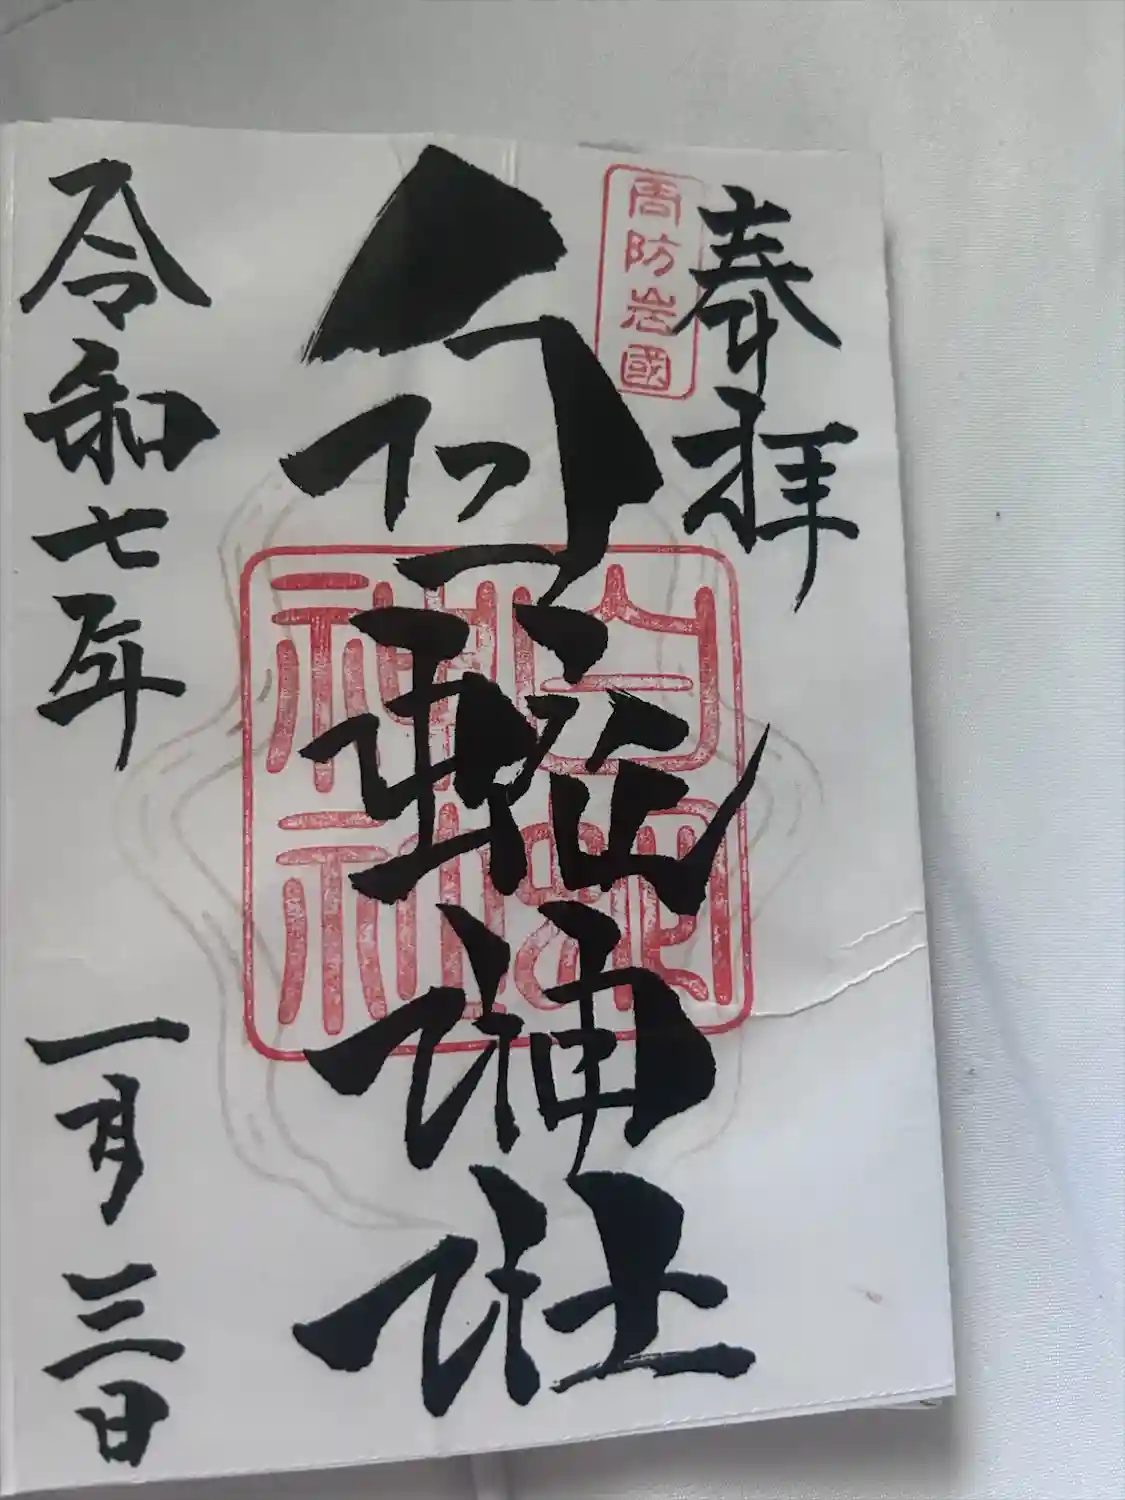 奉拝
周防岩國
白蛇神社
白蛇神社
令和七年 一月三日